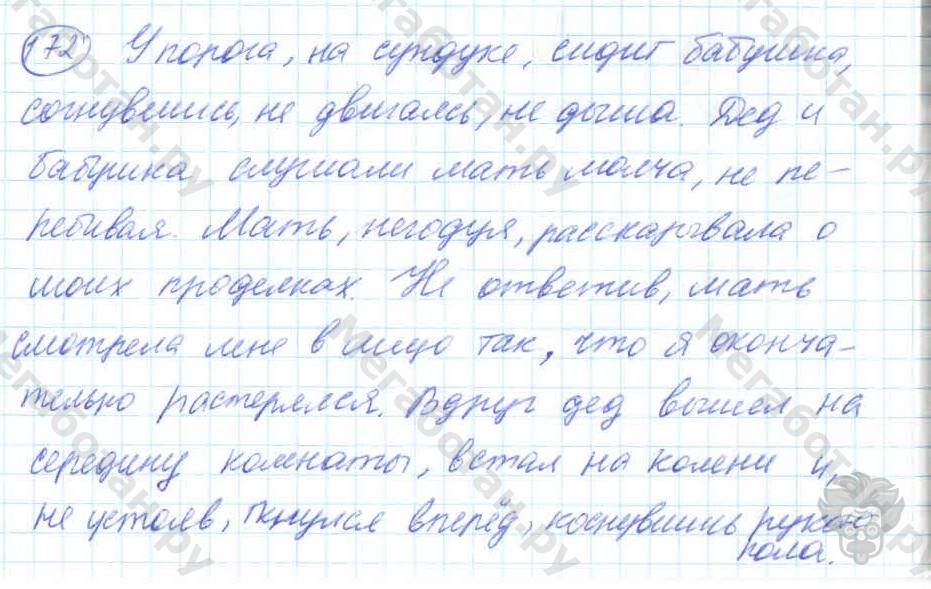 172 У порога, на сундуке, сидит бабушка,
согнувшись, не двигаясь, не дыша. Дед и
бабушка слушали мать молча, не пе-
ребивая. Мать, негодуя, рассказывала о
моих проделках. Не ответив, мать
смотрела мне в лицо так, что я оконча-
тельно растерялся. Вдруг дед вышел на
середину комнаты, встал на колени и,
не устояв, ткнулся вперёд, коснувшись рукою
пола.
мегаботан.ру